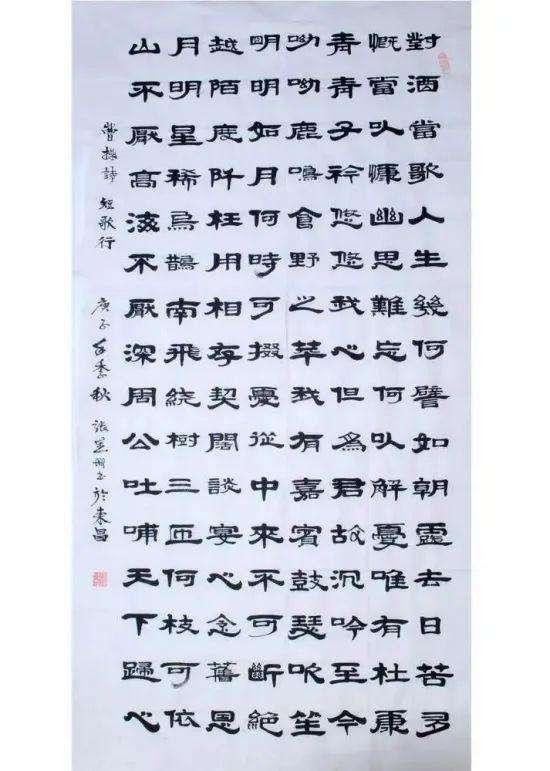 對酒當歌人生幾何譬如朝露去日苦多
慨當以慷幽思難忘何以解憂唯有杜康
青青子衿悠悠我心但為君故沉吟至今
呦呦鹿鳴食野之苹我有嘉賓鼓瑟吹笙
明明如月何時可掇憂從中來不可斷絕
越陌度阡枉用相存契闊談宴心念舊恩
月明星稀烏鵲南飛繞樹三匝何枝可依
山不厭高海不厭深周公吐哺天下歸心
曹操詩 短歌行 庚子年季秋 張 書於東昌